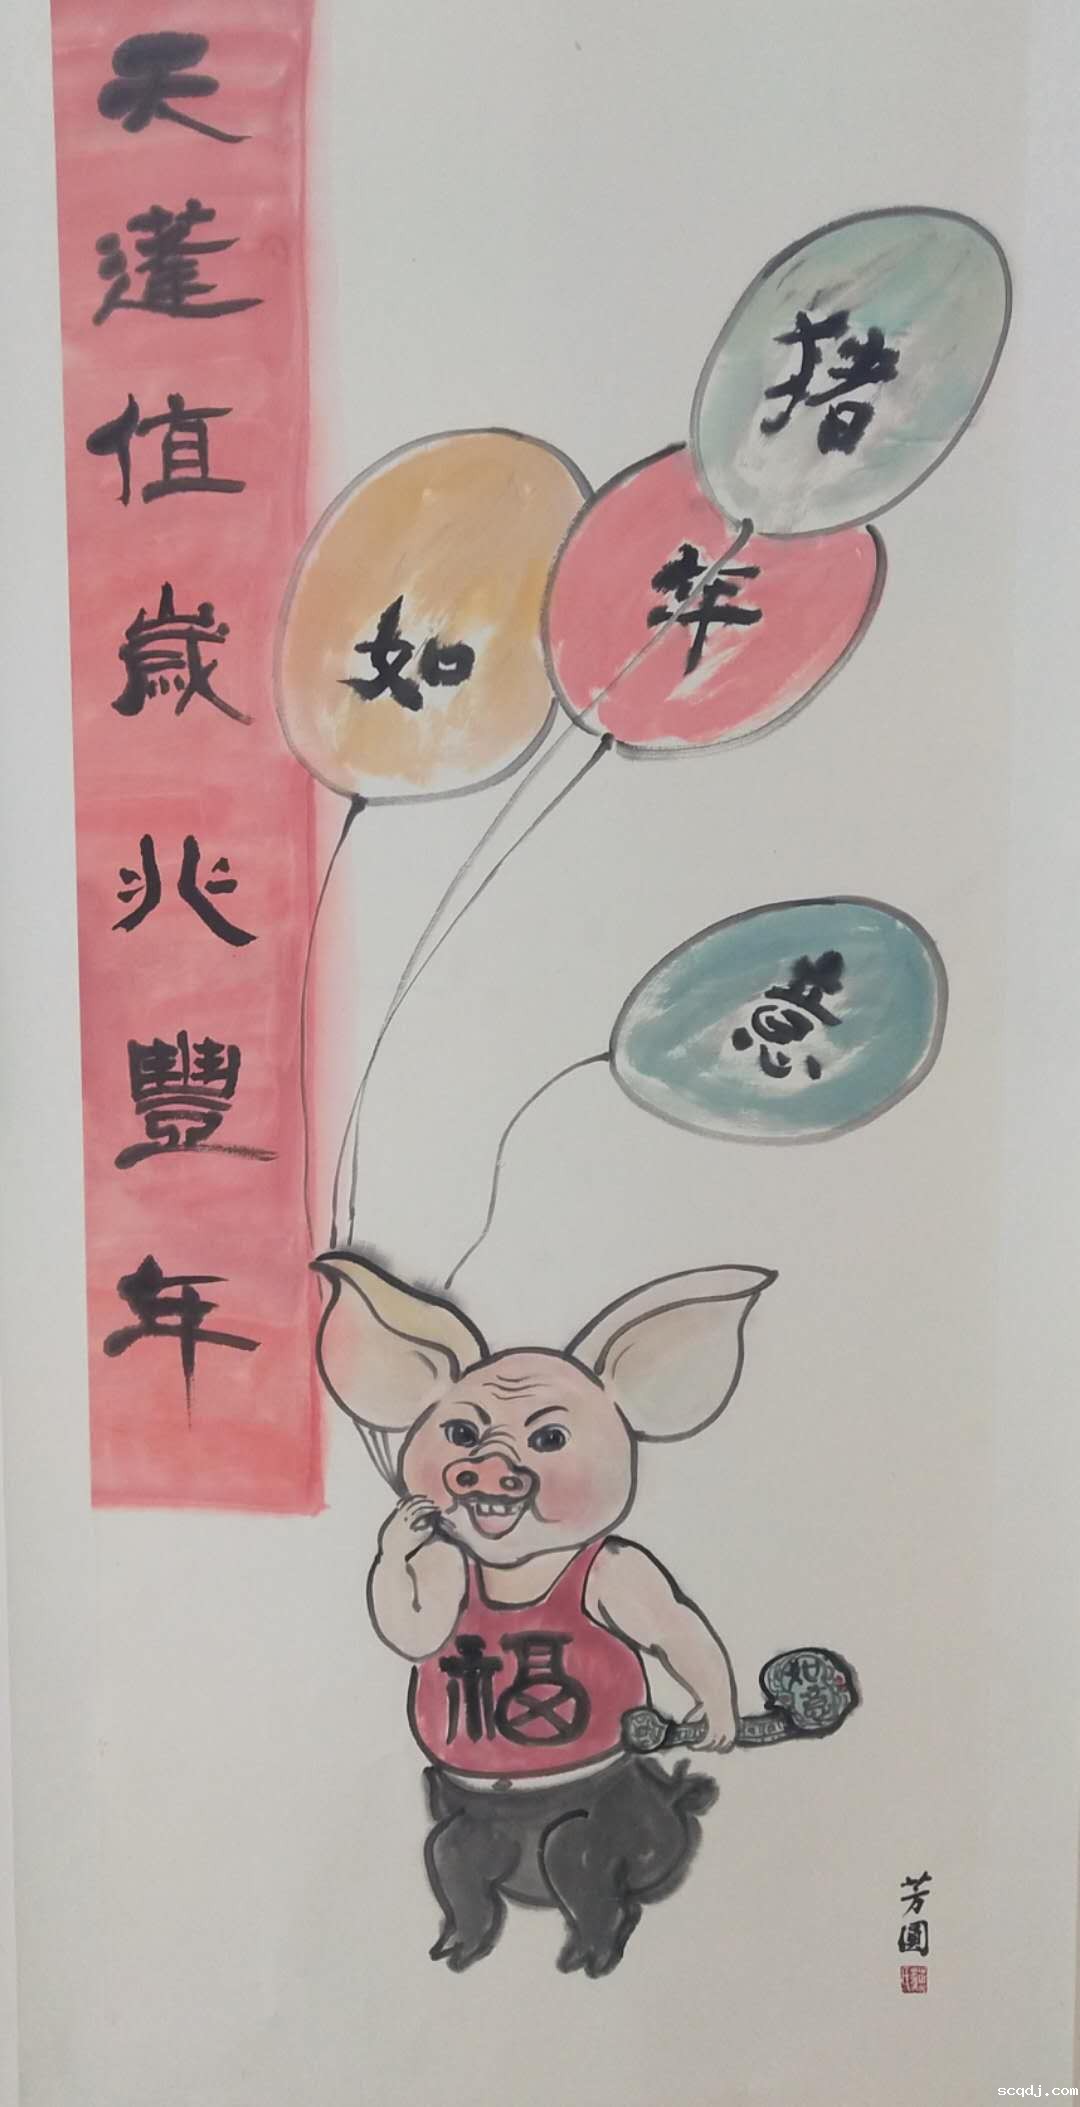 天蓬值歲兆豐年
猪
年
如
意
福
如意
芳圓
scqdj.com